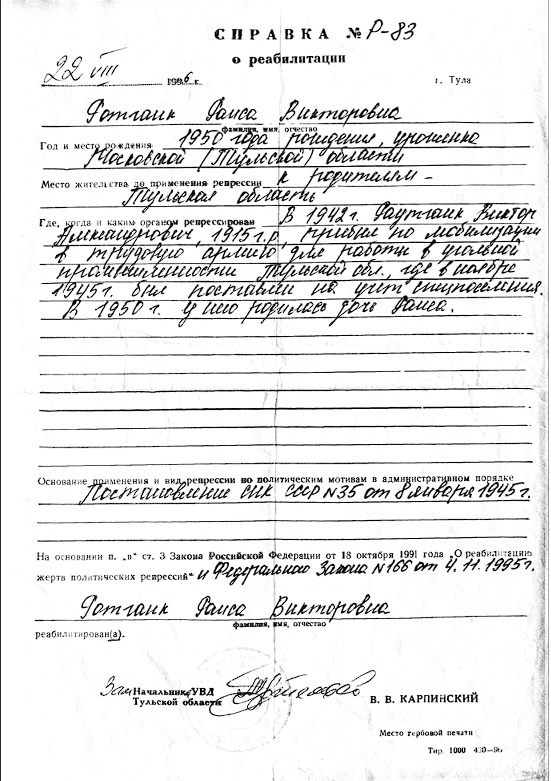 СПРАВКА № Р-83
о реабилитации
22 VIII 1996 г. г. Тула
Ротганк Раиса Викторовна
фамилия, имя, отчество
Год и место рождения 1950 года рождения, уроженка
Московской (Тульской) области
Место жительства до применения репрессии к родителям -
Тульская область
Где, когда и каким органом репрессирован В 1942 г. Раутганк Виктор
Александрович, 1915 г.р., прибыл по мобилизации
в трудовую армию для работы в угольной
промышленности Тульской обл., где в ноябре
1945 г. был поставлен на учет спецпоселения.
В 1950 г. у него родилась дочь Раиса.
Основание применения и вид репрессии по политическим мотивам в административном порядке
Постановление СНК СССР N 35 от 8 января 1945 г.
На основании п. „в" ст. 3 Закона Российской Федерации от 18 октября 1991 года „О реабилитации
жертв политических репрессий" и Федерального Закона N 166 от 4.11.1995 г.
Ротганк Раиса Викторовна
фамилия, имя, отчество
реабилитирован(а).
Зам Начальника УВД
Тульской области
В. В. КАРПИНСКИЙ
Место гербовой печати
Тир. 1000 430-96